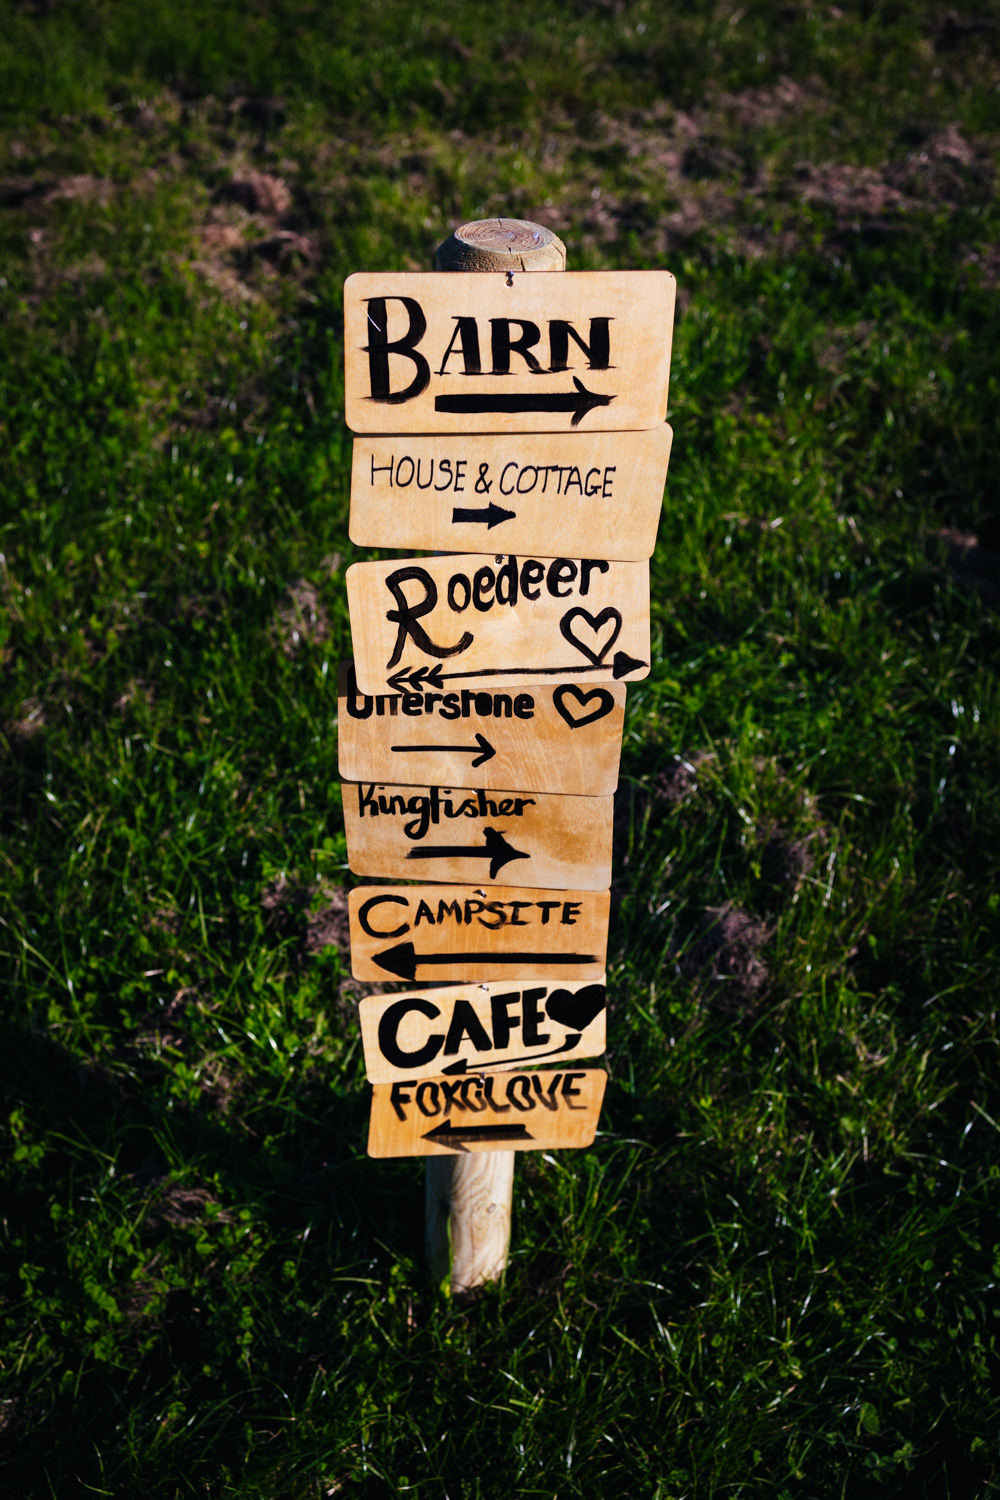 BARN
HOUSE & COTTAGE
Roedeer
Otterstone
Kingfisher
CAMPSITE
CAFE
FOXGLOVE